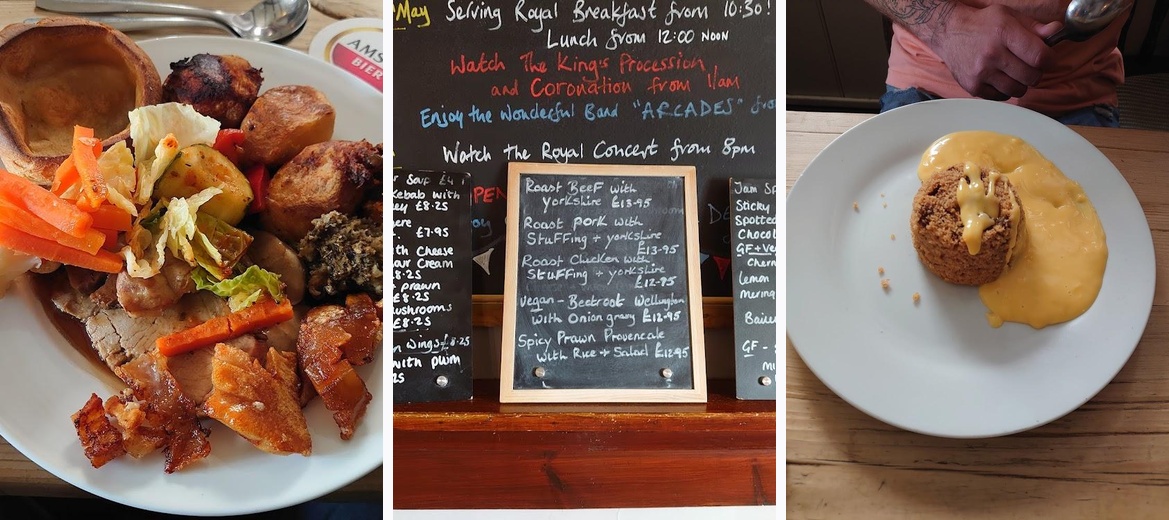 AMS
BIER
May Serving Royal Breakfast from 10:30!
Lunch from 12:00 NOON
Watch The King's Procession
and Coronation from 11am
Enjoy the Wonderful Band "ARCADES" fro
Watch the Royal Concert from 8pm
PEN
r Soup £4
Kebab with
ey £8.25
ere
£7.95
ith Cheese
our Cream
8.25
prawn
£8.25
ushrooms
£8.25
n Wings £8.25
with plum
25
Roast Beef with
Yorkshire £13.95
Roast pork with
Stuffing + yorkshire
£13.95
Roast Chicken with
Stuffing + yorkshire
£12.95
vegan - Beetroot Wellington
with Onion gravy £12.95
Spicy Prawn Provencale
with Rice + Salad £12.95
Jam Sp
Sticky
Spotted
Chocol
GF+Ve
Cherr
lemon
mering
GF -